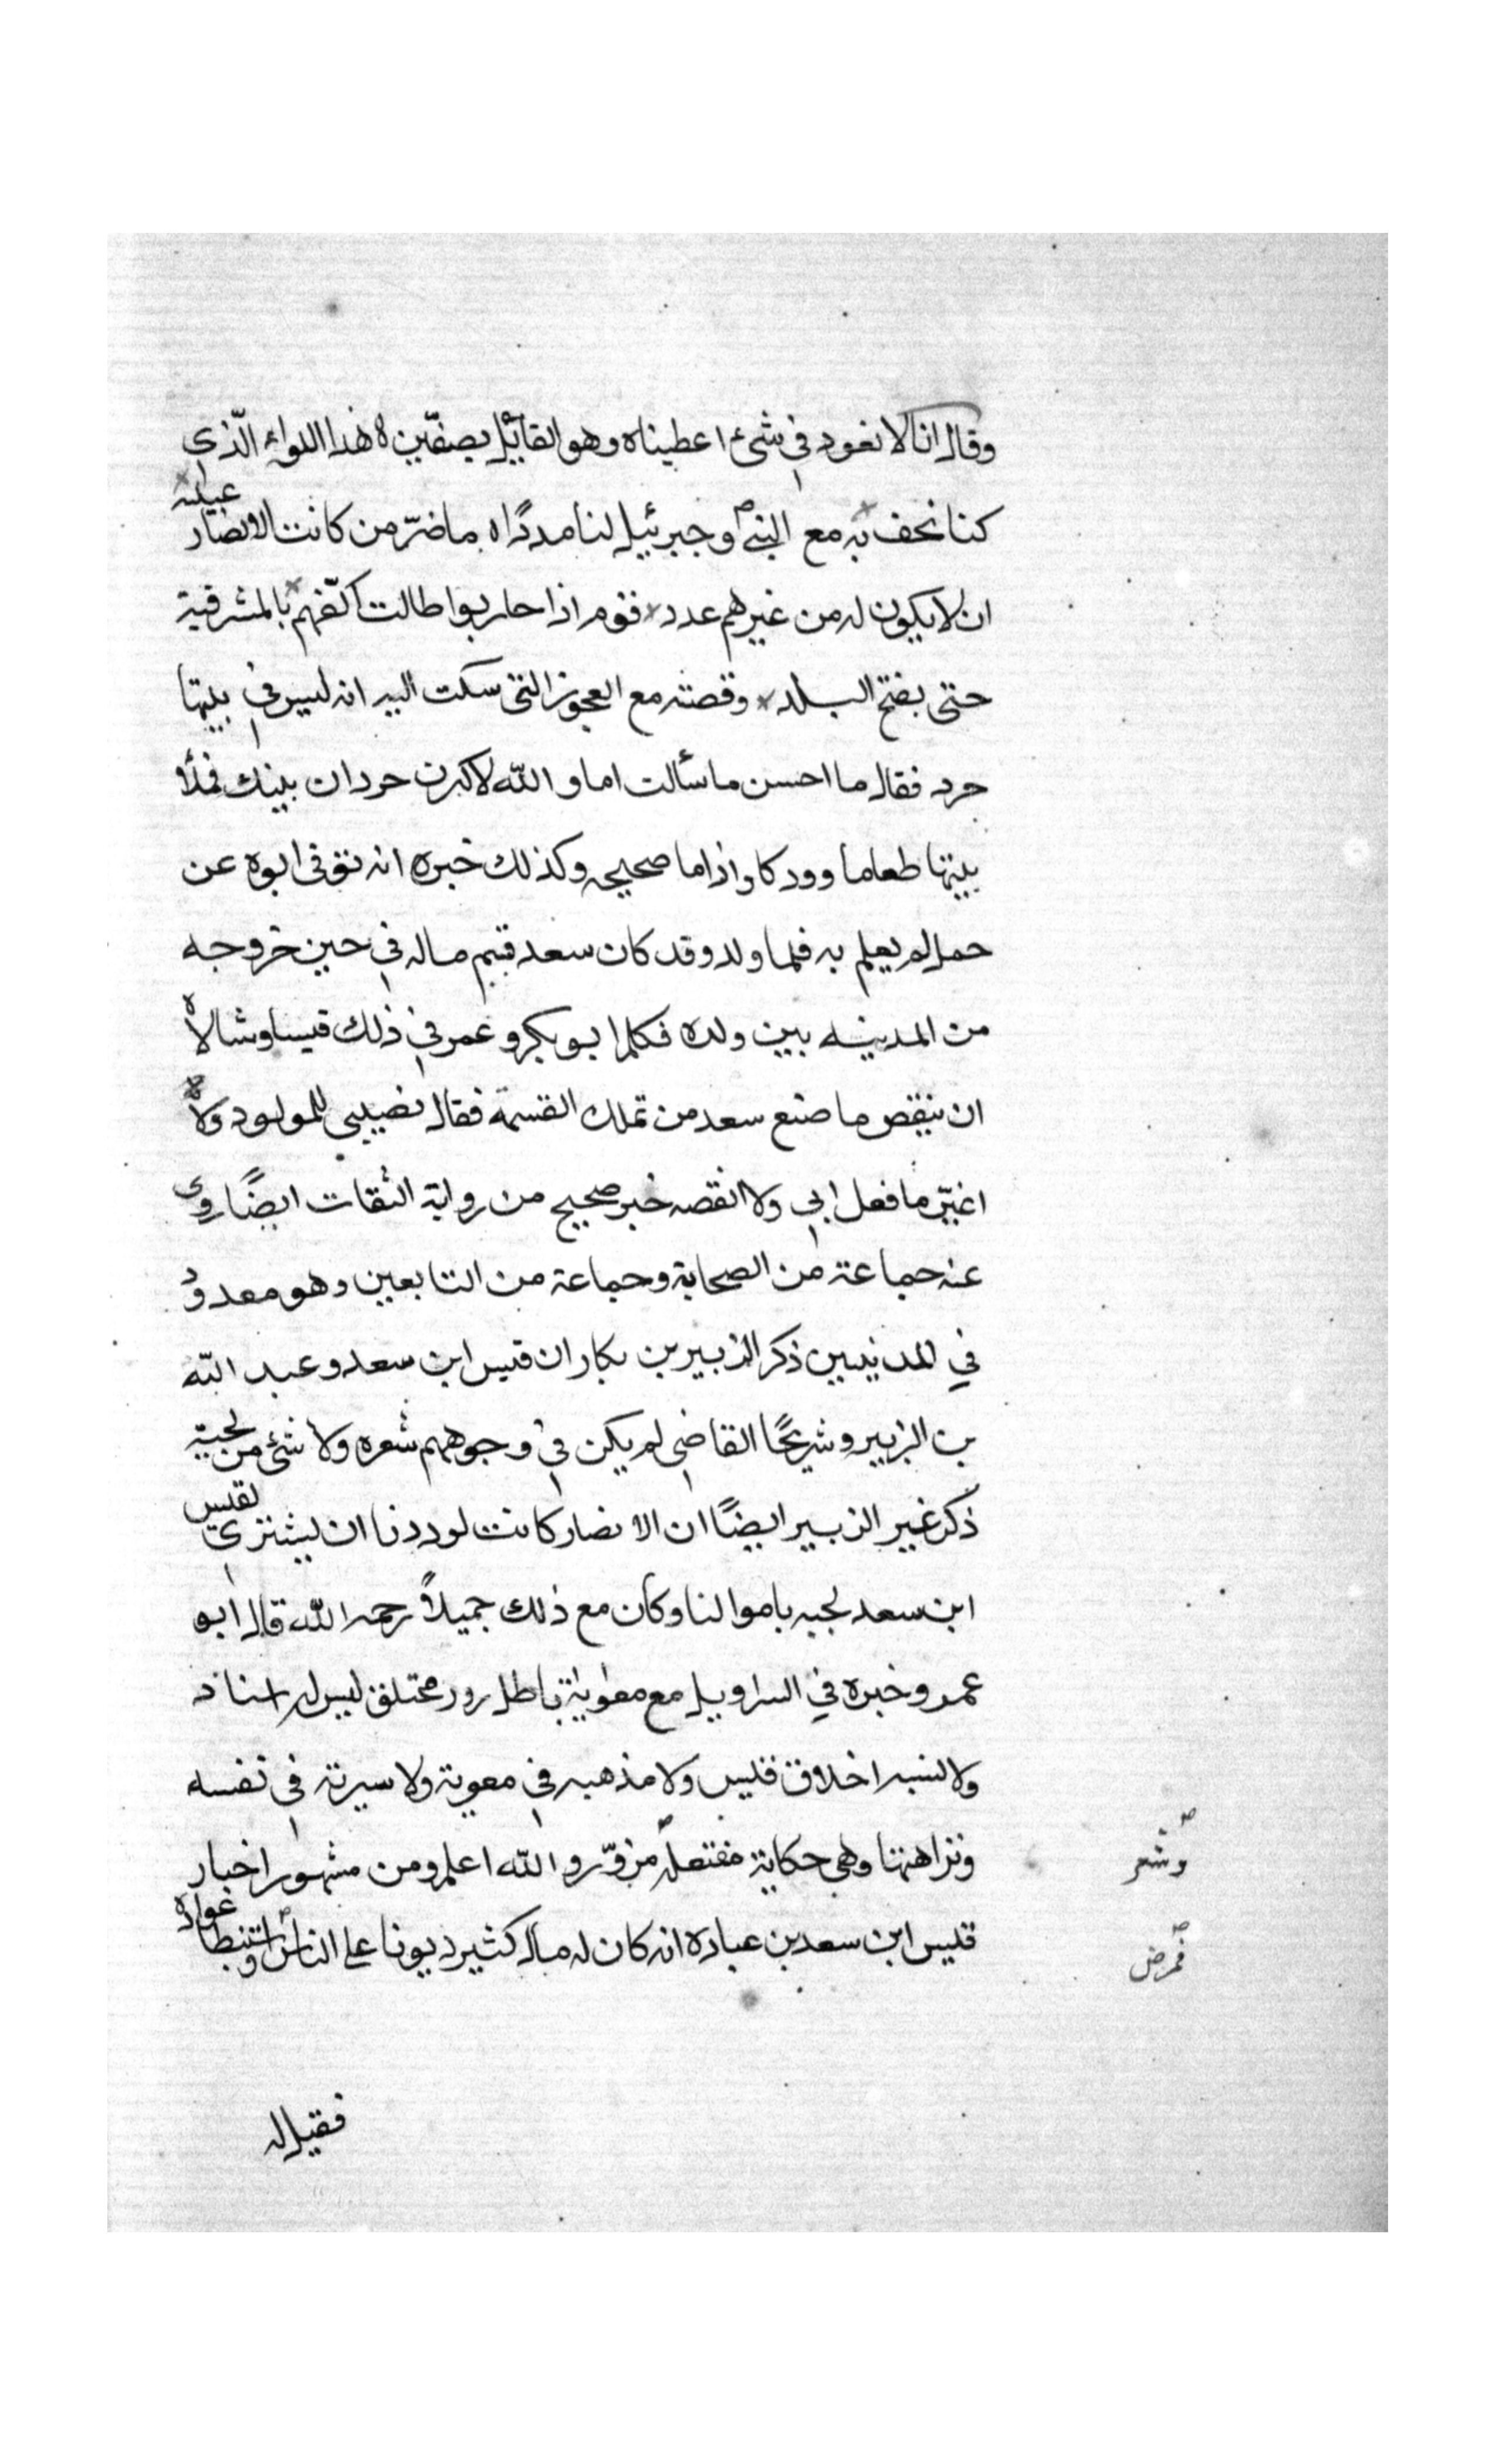 وقال انا لا نعود في شئ اعطيناه وهو القائيل بصفين ه هذا اللواء الذي
كنا نحف به مع النبي ص وجبرئيل لنا مددًا ه ما ضرّ من كانت الانصار عيبته
ان لا يكون له من غيرهم عدد × قوم اذا حاربوا طالت اكفهم × بالمشرفية
حتى يفتح البلد × وقصته مع العجوز التي سكت اليه انه ليس في بيتها
جرد فقال ما احسن ما سألت اما والله لاكثرن جردان بيتك فملأ
بيتها طعاما وودكا واداما صحيحه وكذلك خبره انه توفى ابوه عن
حمل لم يعلم به فلما ولد وقد كان سعد قسم ماله في حين خروجه
من المدينه بين ولده فكلم ابو بكر و عمر في ذلك قيسا وسالاه
ان ينقض ما صنع سعد من تملك القسمة فقال نصيبي للمولود ولا
اغيّر ما فعل ابي ولا انقصه خبر صحيح من رواية الثقات ايضًا روى
عنه جماعة من الصحابة وجماعة من التابعين وهو معدود
في المدنيين ذكر الزبير بن بكار ان قيس ابن سعد و عبد الله
بن الزبير و شريحًا القاضي لم يكن في وجوههم شعره ولا شئ من لحية
ذكر غير الزبير ايضًا ان الانصار كانت لوددنا ان يشتري لقيس
ابن سعد لحيه باموالنا وكان مع ذلك جميلاً رحمه الله قال ابو
عمر و خبره في السراويل مع معاوية باطل زور مختلق ليس له اسناد
ولا نسبه اخلاق قيس ولا مذهبه في معوية ولا سيرته في نفسه
ونزاهتنا وهي حكاية مفتعله مزوّر والله اعلم ومن مشهور اخبار
وشعر
قيس ابن سعد بن عباده انه كان له مال كثير ديونا على الناس واستبطا عواده
فمرض
فقيل له